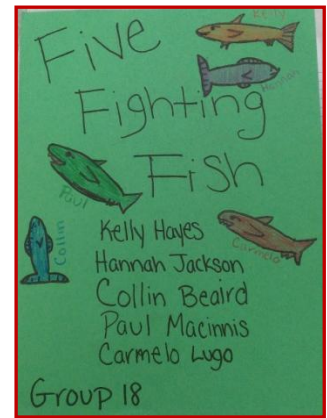 Five
Kelly
Hannah
Fighting
Fish
Paul
Collin
Carmelo
Kelly Hayes
Hannah Jackson
Collin Beaird
Paul Macinnis
Carmelo Lugo
Group 18